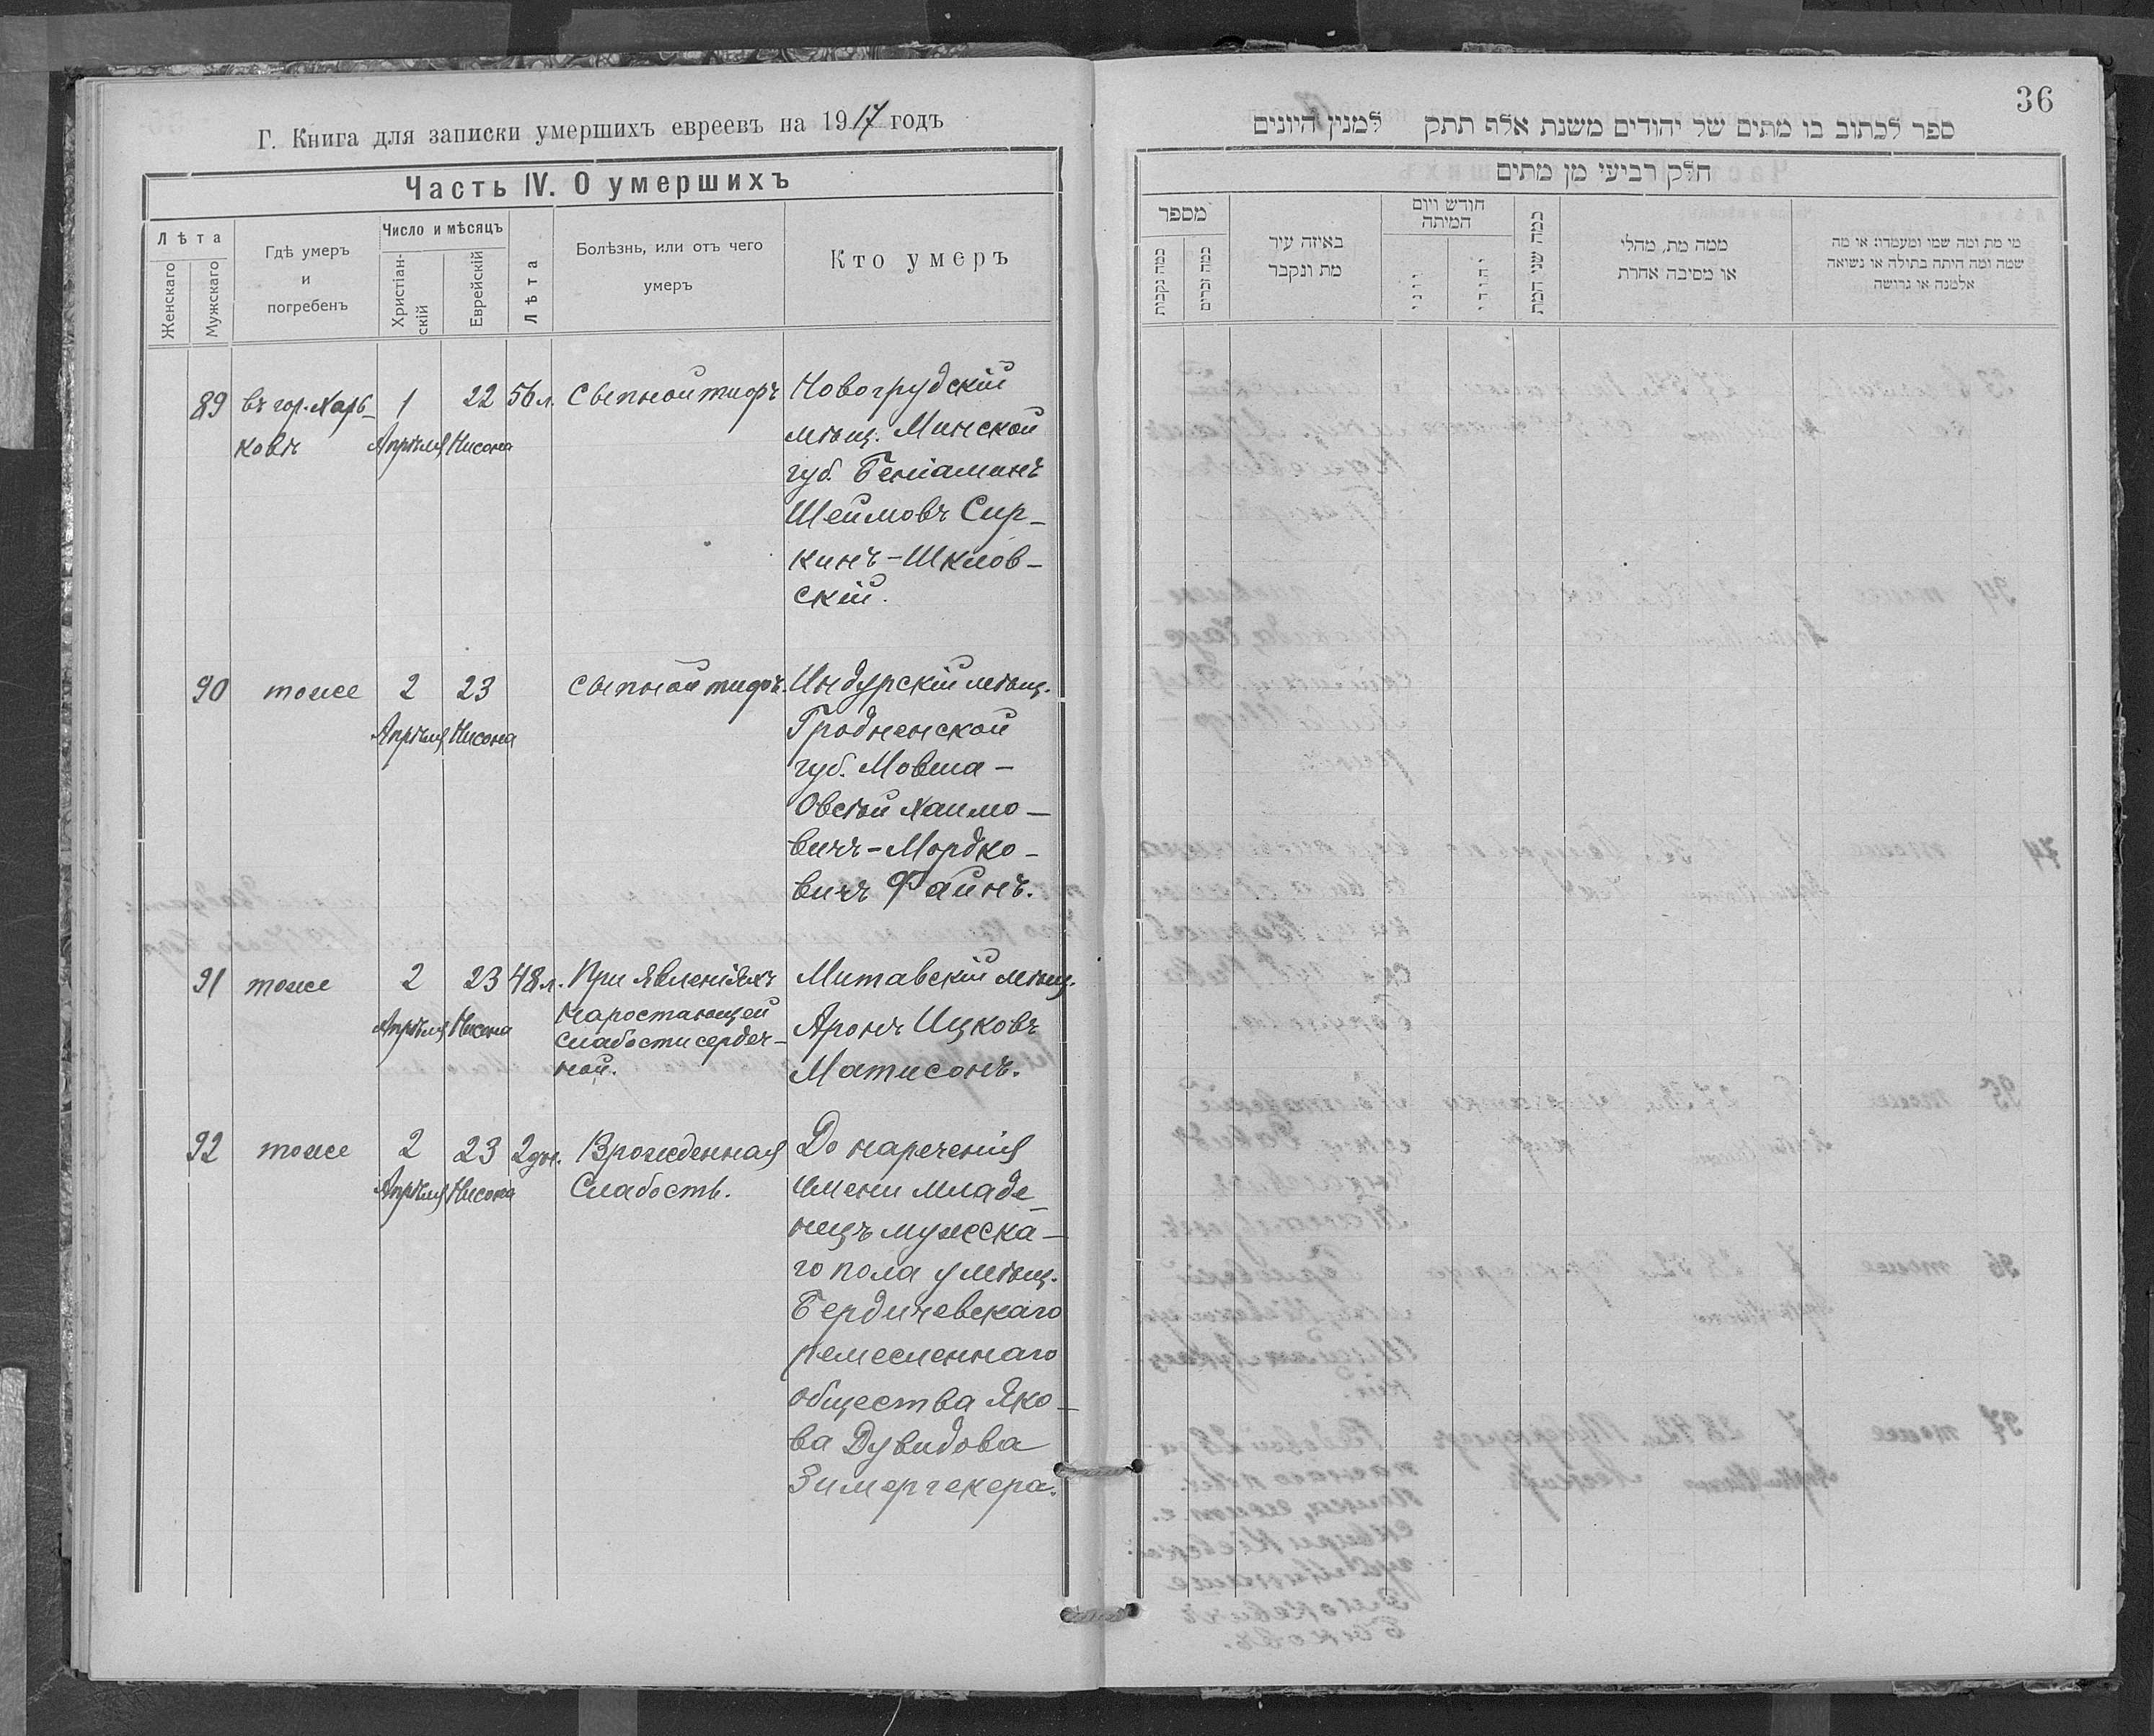 Г. Книга для записки умершихъ евреевъ на 1917 годъ
Часть IV. О умершихъ
Лѣта
Женскаго
Мужскаго
Гдѣ умеръ
и
погребенъ
Число и мѣсяцъ
Христіан-
скій
Еврейскій
Лѣта
Болѣзнь, или отъ чего
умеръ
Кто умеръ
89 въ гор. Харь- 1 22 56 л. Сыпной тифъ Новогрудскій
ковѣ Апрѣля Нисона мѣщ. Минской
губ. Беніаминъ
Шеимовъ Сир-
кинъ-Шклов-
скій.
90 тоже 2 23 Сыпной тифъ. Индурскій мѣщ.
Апрѣля Нисона Гродненской
губ. Мовша-
Овсѣй Хаимо-
вичъ-Мордко-
вичъ Файнъ.
91 тоже 2 23 48 л. При явленіяхъ Митавскій мѣщ.
Апрѣля Нисона наростающей Аронъ Ицковъ
слабости сердеч-
ной. Матисонъ.
92 тоже 2 23 2 дн. Врожденная До нареченія
Апрѣля Нисона Слабость. имени младе-
нецъ мужска-
го пола у мѣщ.
Бердичевскаго
ремесленнаго
общества Яко-
ва Дувидова
Зимергекера.
36
ספר לכתוב בו מתים של יהודים משנת אלף תתק למנין היונים
חלק רביעי מן מתים
מספר
כמה נקבות
כמה זכרים
באיזה עיר
מת ונקבר
חודש ויום
המיתה
יוני
יהודי
כמה שני המת
ממה מת, מחלי
או מסיבה אחרת
מי מת ומה שמו ומעמדו: או מה
שמה ומה היתה בתולה או נשואה
אלמנה או גרושה